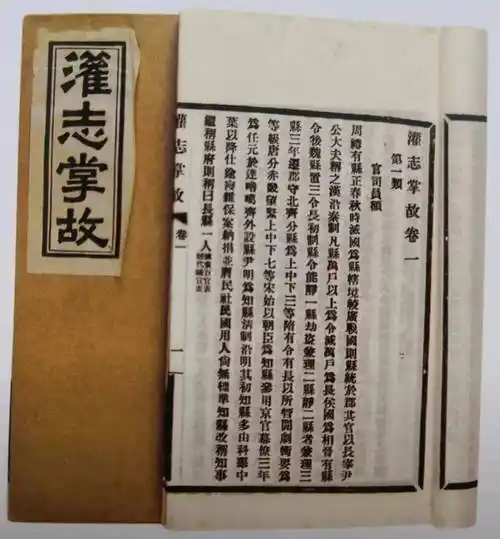 灌志掌故
灌志掌故卷一
第一類
官司員額
周禮有縣正春秋時滅國爲縣轄境較廣戰國則縣統於郡其官以長宰尹
公大夫稱之漢沿秦制凡縣萬戶以上爲令減萬戶爲長侯國爲相晉有縣
令後魏縣置三令長初制縣令能靜一縣劫盜兼理二縣靜二縣者兼理三
縣三年遷郡守北齊分縣爲上中下三等隋有令有長以所管閒劇衝要爲
等級唐分赤畿望緊上中下七等宋始以朝臣爲知縣參用京官幕僚三年
爲任元於達嚕噶齊外設縣尹明爲知縣清制沿明其初知縣多由科舉中
葉以降仕途龐雜保案納捐並膺民社民國用人尚無標準知縣改稱知事
繼稱縣府則稱曰長縣一人
歷代職官表
灌志掌故 卷一 一